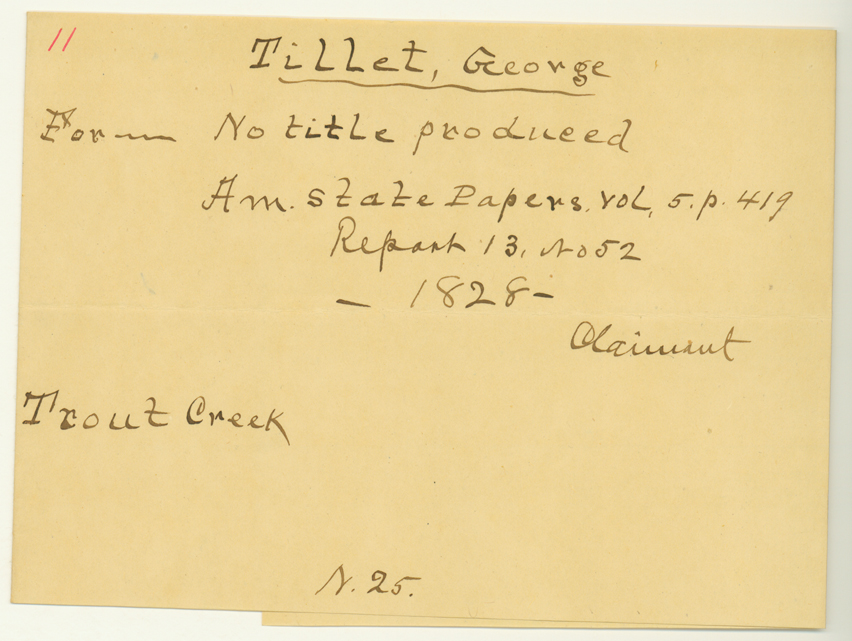 11
Tillet, George
For — No title produced
Am. State Papers. vol, 5. p. 419
Report 13, No 52
— 1828 —
Claimant
Trout Creek
N. 25.